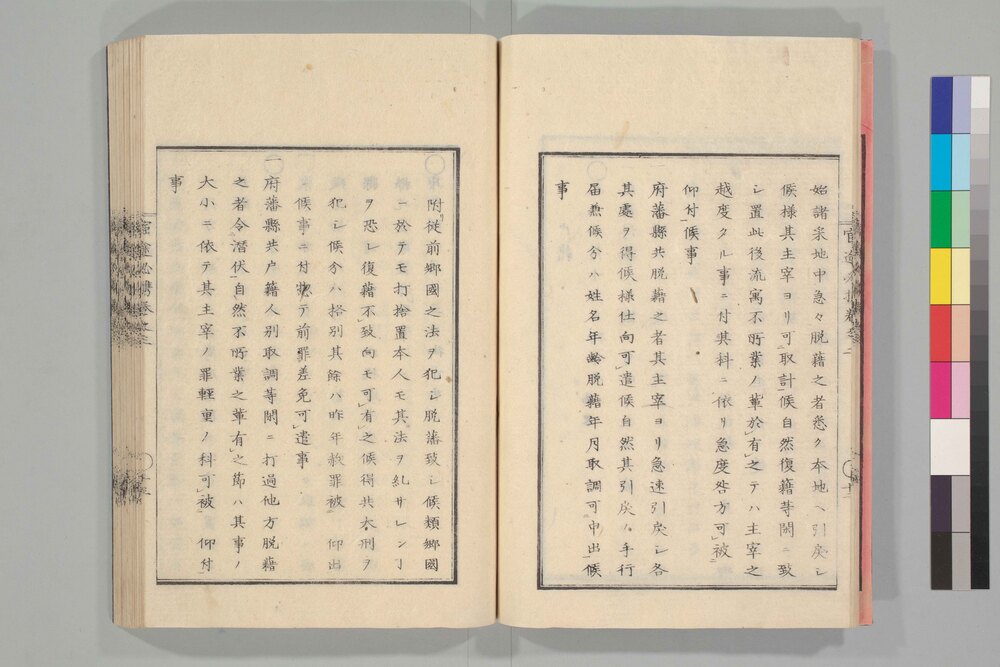 始諸采地中急々脱藉之者悉ク本地ヘ引戾シ
候様其主宰ヨリ可取計候自然復籍等閑ニ致
シ置此後流寓不所業ノ輩於有之テハ主宰之
越度タル事ニ付其科ニ依リ急度咎方可被
仰付候事
府藩縣共脱藉之者其主宰ヨリ急速引戾シ各
其處ヲ得候様仕向可遣候自然其引戾方手行
届兼候分ハ姓名年齢脱藉年月取調可申出候
事
附従前郷國之法ヲ犯シ脱藩致シ候類郷國
ニ於テモ打捨置本人モ其法ヲ糺サレン丁
ヲ恐レ復藉不致向モ可有之候得共太刑ヲ
犯シ候分ハ格別其餘ハ昨年赦罪被仰出
候事ニ付惣テ前罪差免可遣事
一府藩縣共户籍人別取調等閑ニ打過他方脱藉
之者令潜伏自然不所業之輩有之節ハ其事ノ
大小ニ依テ其主宰ノ罪輕重ノ科可被仰付
事